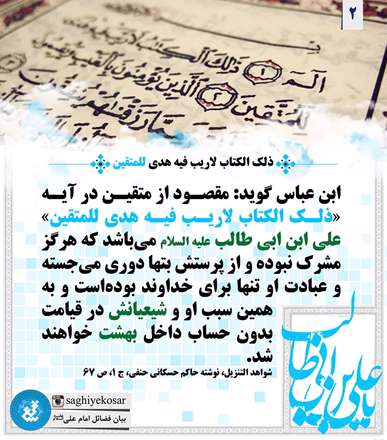 ۲
الٓمٓ ﴿١﴾ ذٰلِكَ الْكِتٰبُ لَارَيْبَ فِيهِ هُدًى
لِلْمُتَّقِينَ ﴿٢﴾ الَّذِينَ يُؤْمِنُونَ بِالْغَيْبِ
ذلک الکتاب لاریب فیه هدی للمتقین
ابن عباس گوید: مقصود از متقیـن در آیـه
«ذلـک الکتاب لاریـب فیـه هدی للمتقین»
علی ابن ابی طالب علیه السلام می‌باشد که هرگز
مشرک نبوده و از پرستش بتها دوری می‌جسته
و عبادت او تنها برای خداوند بوده‌است و به
همین سبب او و شیعیانش در قیامت
بدون حساب داخل بهشت خواهند
شد.
شواهد التنزیل، نوشته حاکم حسکانی حنفی، ج ۱، ص ۶۷
یا علی بن ابی طالب
saghiyekosar
بیان فضائل امام علی